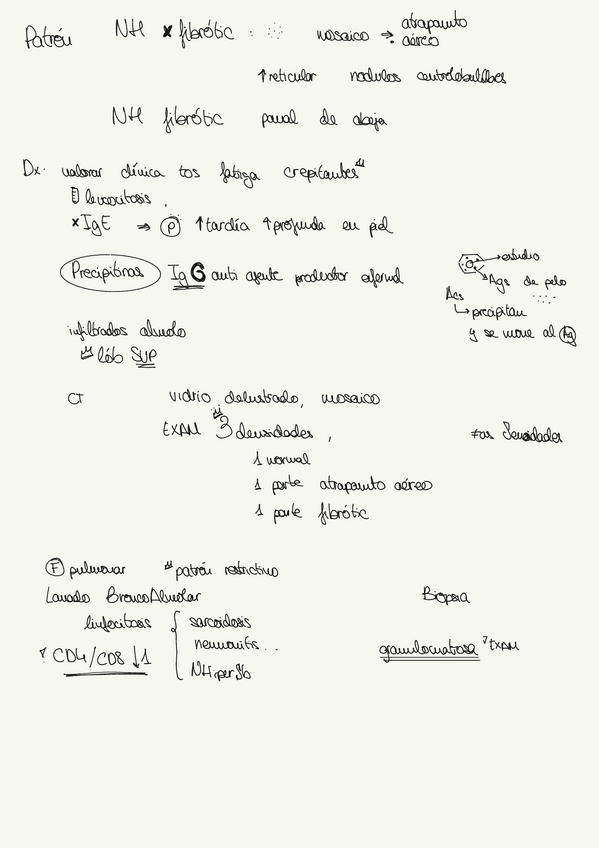 Patrón NH x fibrótic mosaico → atrapamito aéreo
↑ reticular nodulos centrolobulillares
NH fibrótic panal de abeja
Dx. valorar clínica tos fatiga crepitantes
leucocitosis,
x IgE ⇒ P ↑ tardía ↑ profunda en piel
Precipitinas IgG anti agente productor efermd
→ estudio
Ags de pelo
Acs
↳ precipitan
y se move al Ag
infiltrados alveolo
lób SUP
CT vidrio delustrado, mosaico
EXAM 3 densidades, ≠as Densidades
1 normal
1 parte atrapamito aéreo
1 parte fibrótic
F pulmonar patrón restrictivo
Lavado BroncoAlveolar Biopsia
linfocitosis { sarcoidosis
neumonits..
granulomatosa EXAM
? CD4/CD8 ↓1
NHiper